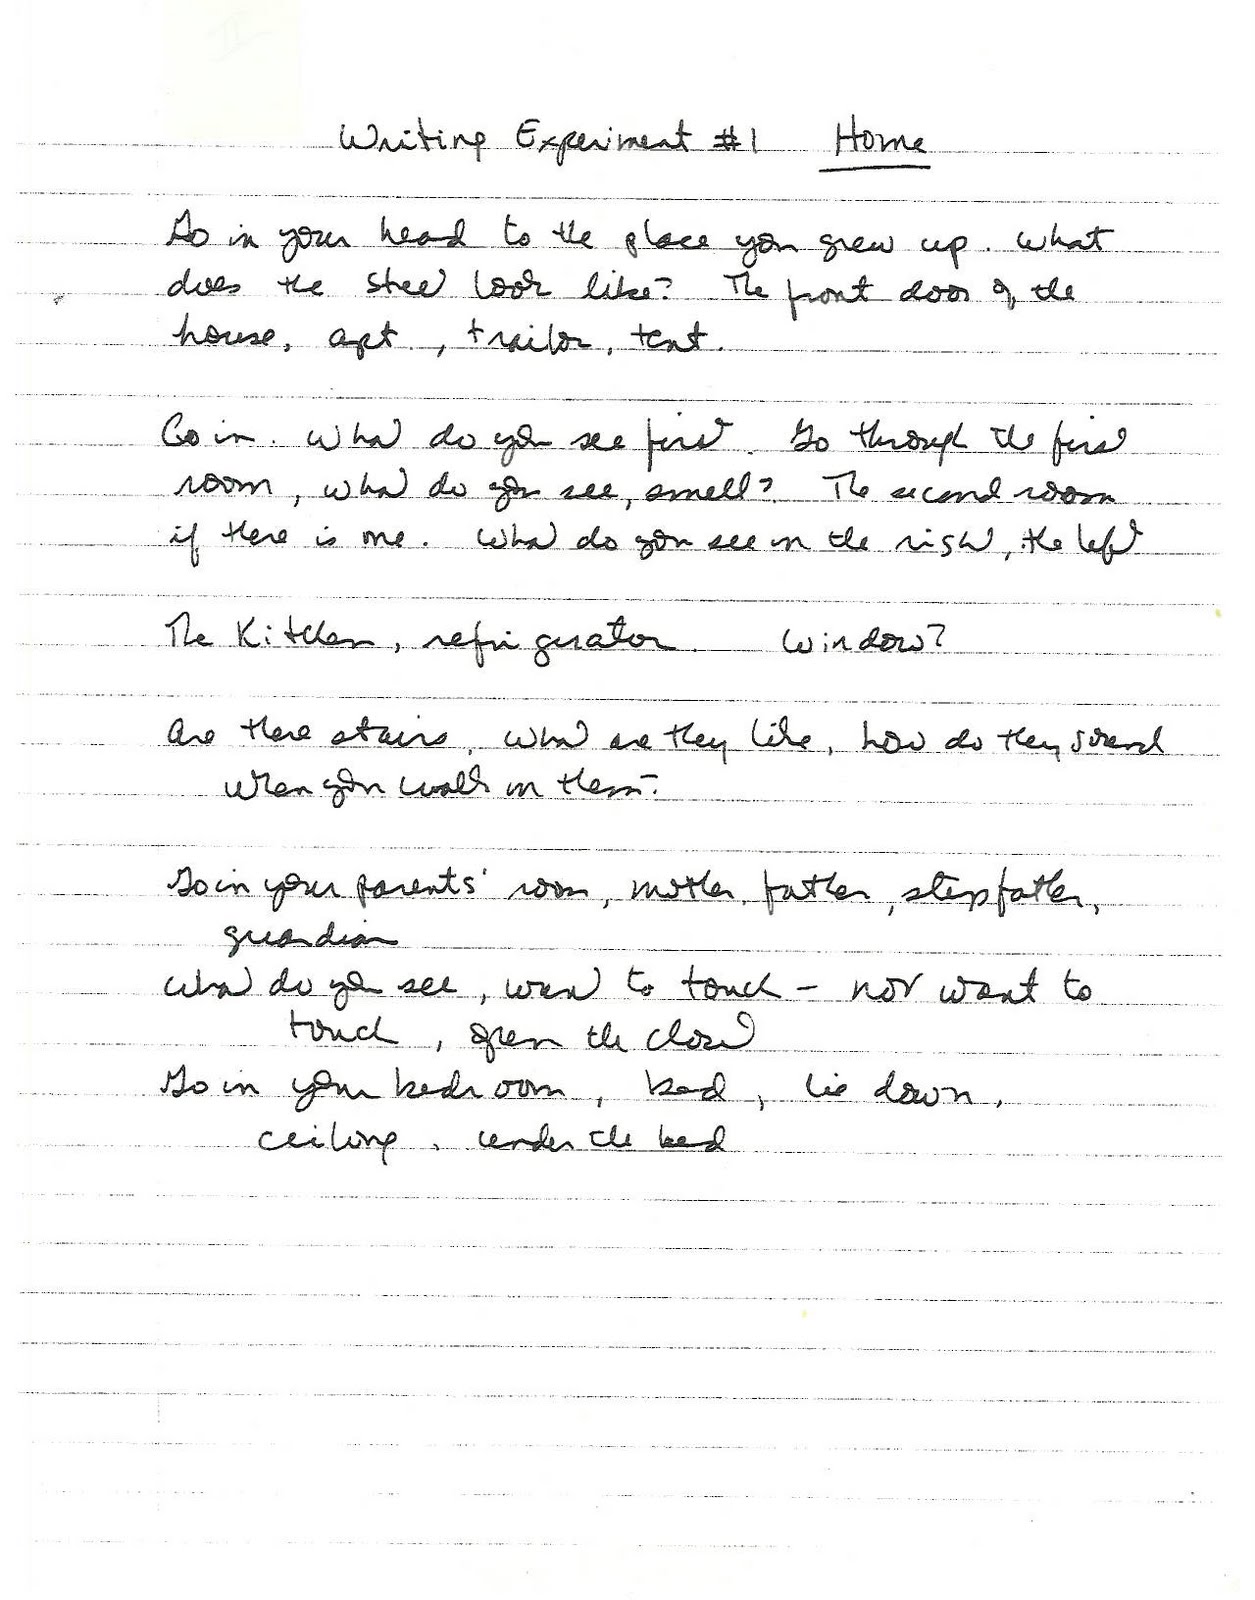 Writing Experiment #1 Home
Go in your head to the place you grew up. What
does the street look like? The front door of the
house, apt., trailor, tent.
Go in. What do you see first. Go through the first
room, what do you see, smell? The second room
if there is one. What do you see on the right, the left
The Kitchen, refrigerator. Window?
Are there stairs, what are they like, how do they sound
when you walk on them?
Go in your parents' room, mother, father, stepfather,
guardian
What do you see, want to touch - not want to
touch, open the closet
Go in your bedroom, bed, lie down,
ceiling, under the bed